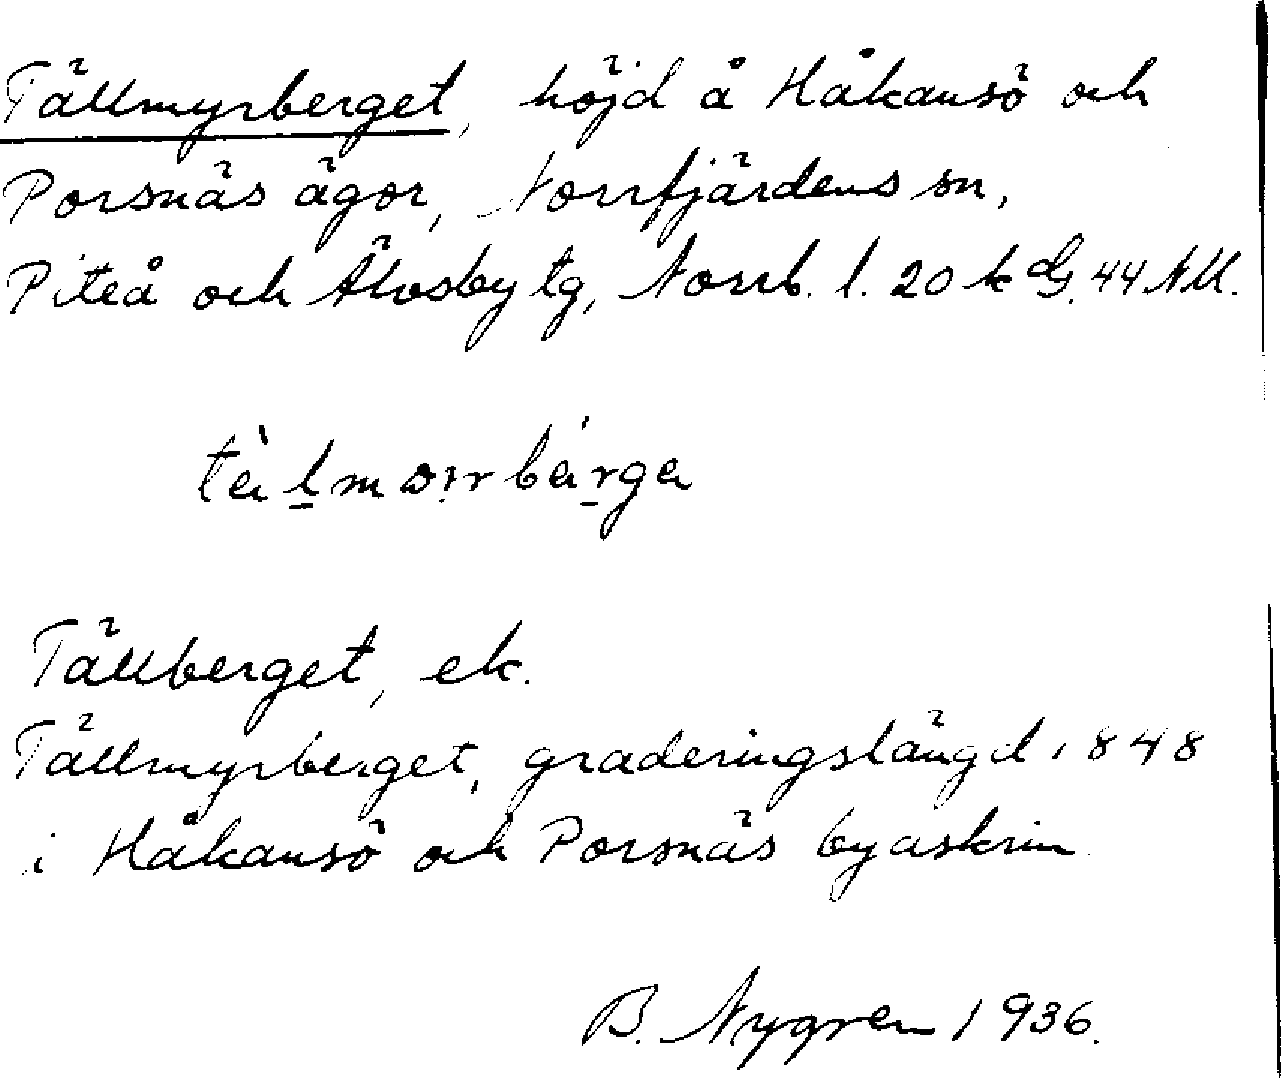 Tällmyrberget, höjd å Håkansö och
Porsnäs ägor, Norrfjärdens sn,
Piteå och Älvsby tg, Norrb. l. 20 k 44 NU.
Tällberget, ek.
Tällmyrberget, graderingslängd 1848
i Håkansö och Porsnäs byaskrin
B. Nygren 1936.